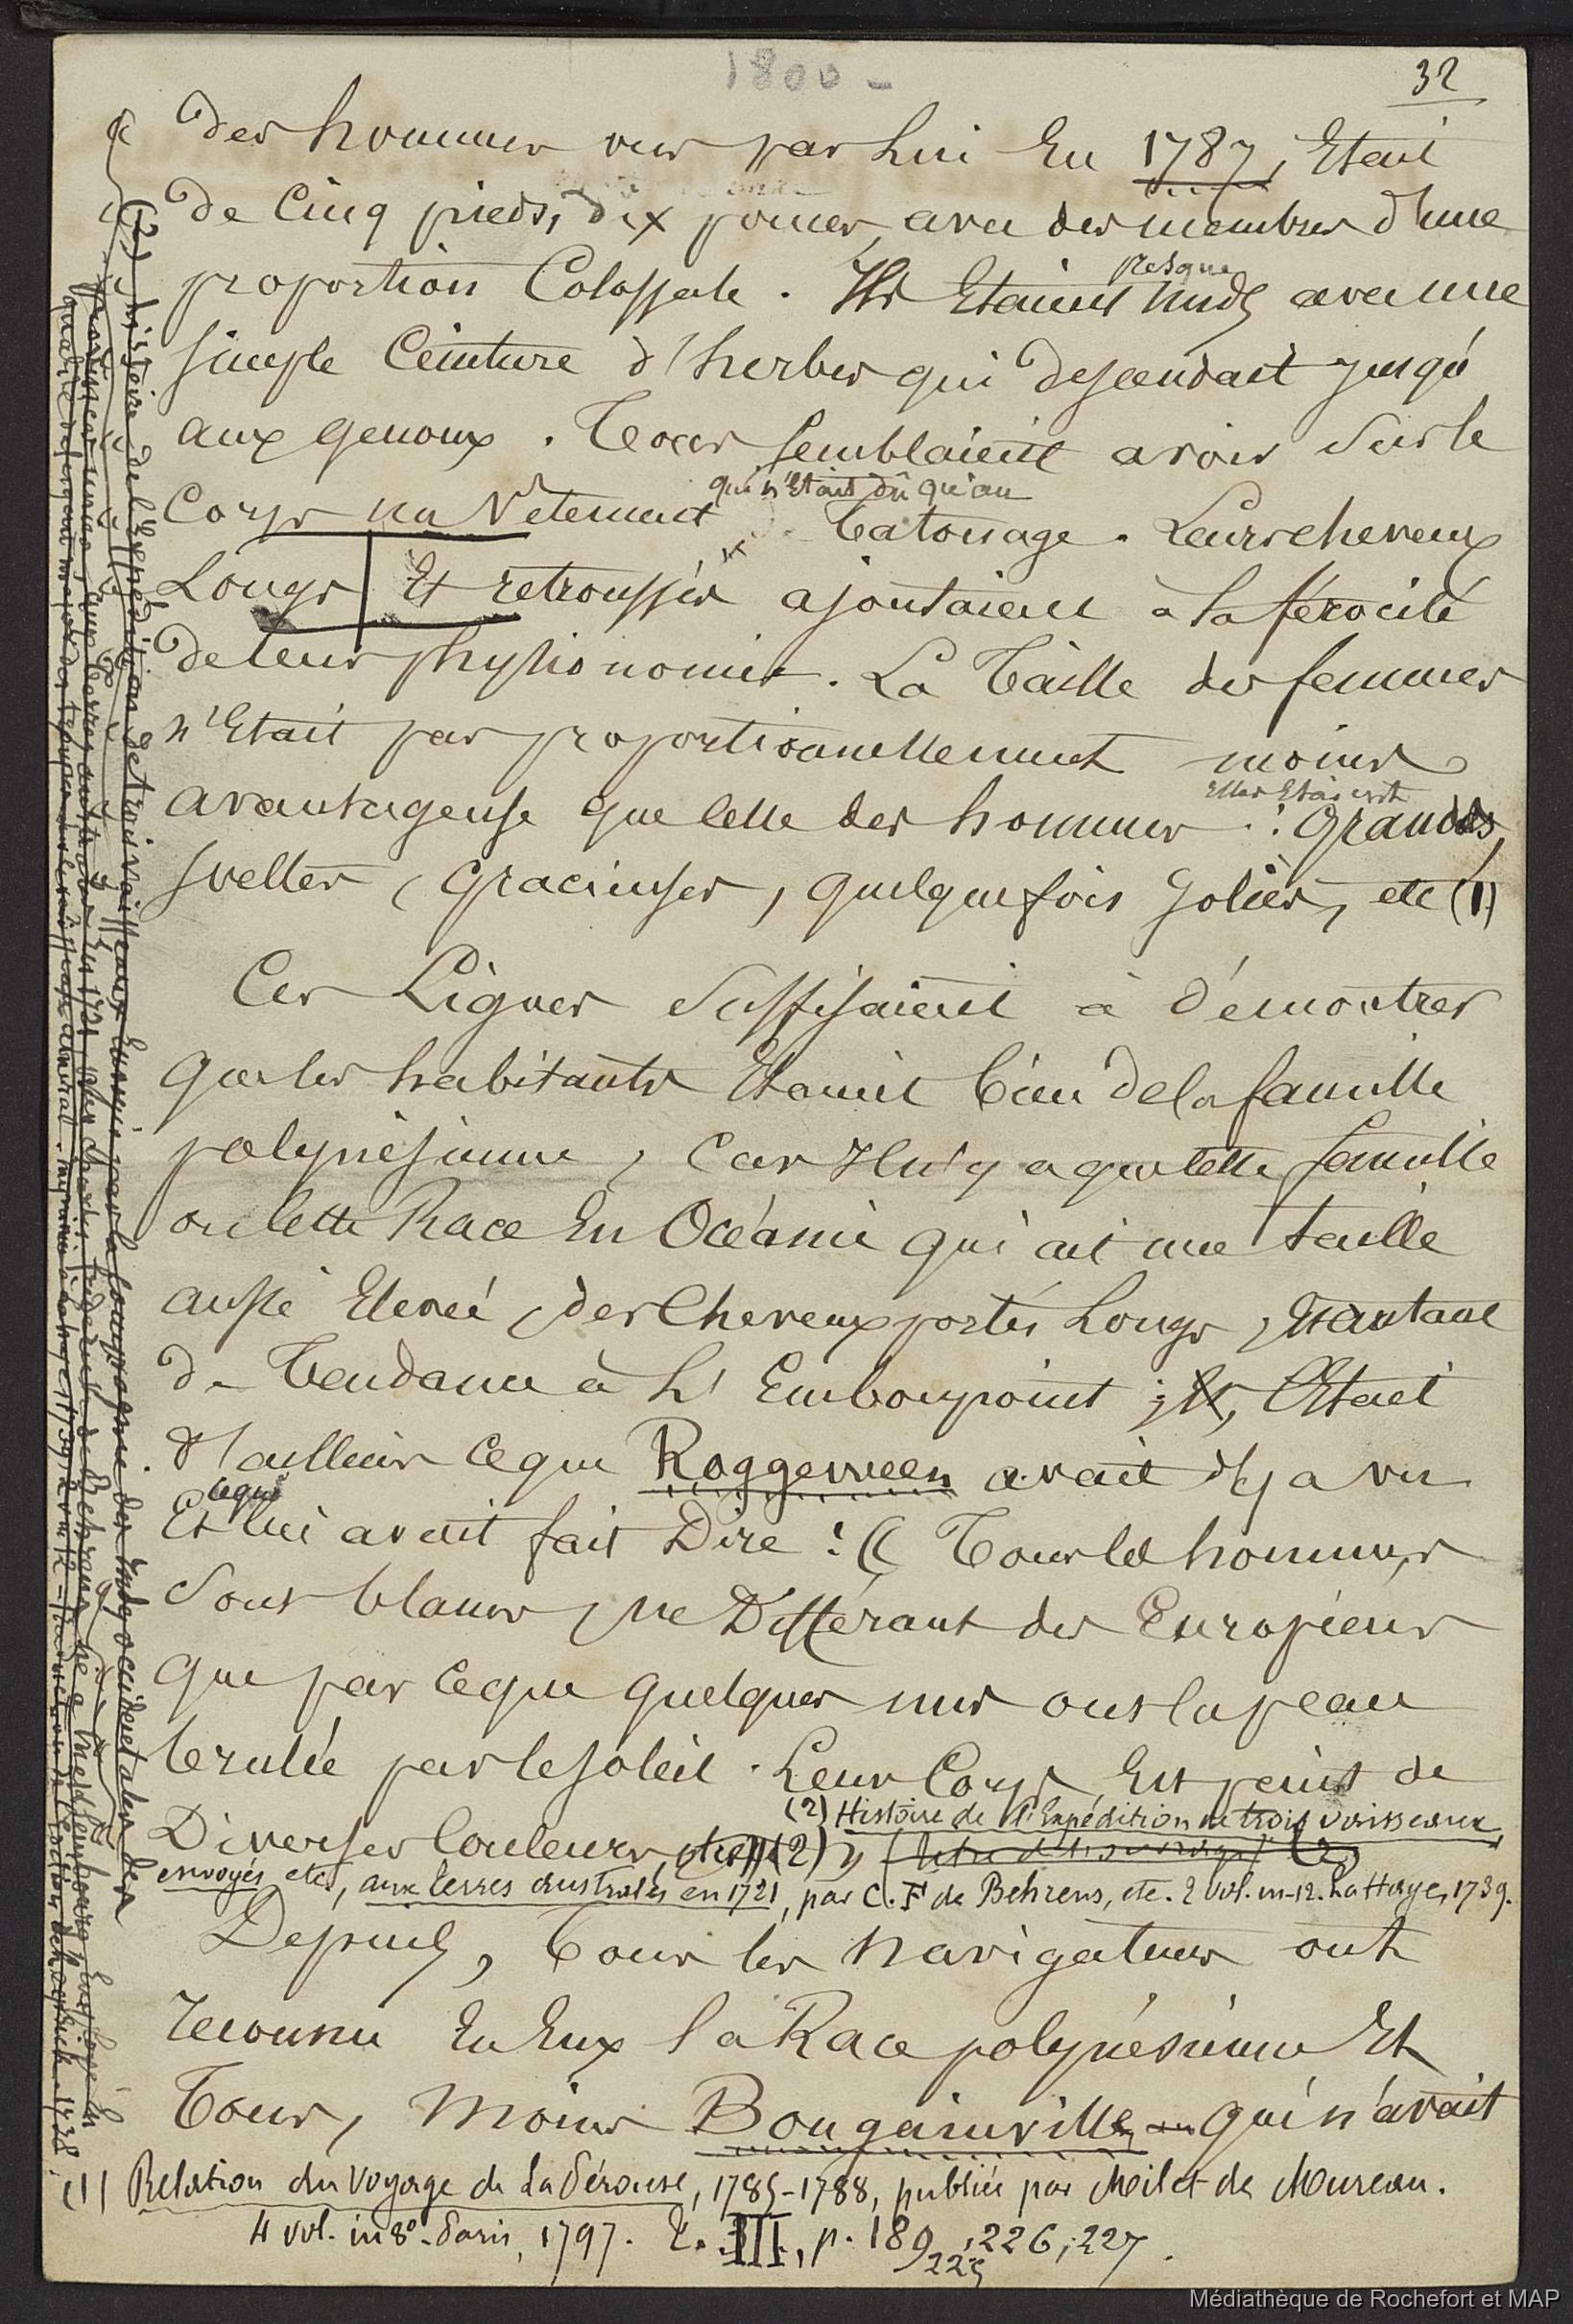 1800 -
32
des hommes vus par lui En 1787, Etait
de Cinq pieds, dix pouces, avec des membres d'une
proportion Colossale. Ils Etaient presque nuds avec une
simple Ceinture d'herbes qui descendait jusqu'
aux genoux. Tous semblaient avoir sur le
Corps un Vetement qui n'Etait dû qu'au tatouage. Leurs cheveux
Longs Et retroussés ajoutaient à la férocité
de leur physionomie. La taille des femmes
n'Etait pas proportionnellement moins
avantageuse que celle des hommes : Elles Etaient Grandes,
sveltes, Gracieuses, quelquefois Jolies, etc (1)
Ces Lignes suffisaient à démontrer
que les habitants Etaient bien de la famille
polynésienne, Car Il n'y a que cette famille
ou cette Race En Océanie qui ait une taille
aussi Elevée, des Cheveux portés Longs, Et autant
de tendance à L'Embonpoint ; C'Etait
d'ailleurs ce que Roggeween avait déjà vu
Et ce qui lui avait fait Dire : « Tous les hommes
sont blancs, ne Différant des Européens
que par ce que quelques uns ont la peau
brulée par le soleil. Leur Corps Est peint de
Diverses Couleurs, (2) »
(2) Histoire de l'Expédition de trois vaisseaux,
envoyés etc., aux terres australes en 1721, par C. F. de Behrens, etc. 2 vol. in-12. La Haye, 1739.
Depuis, tous les navigateurs ont
reconnu En Eux la Race polynésienne Et
tous, moins Bougainville qui n'avait
(1) Relation du Voyage de La Pérouse, 1785-1788, publiée par Milet de Mureau.
4 vol. in 8°. Paris, 1797. T. III, p. 189, 225, 226, 227.
(2) histoire de l'Expédition de trois vaisseaux Envoyés par la Compagnie des Indes occidentales des
Médiathèque de Rochefort et MAP